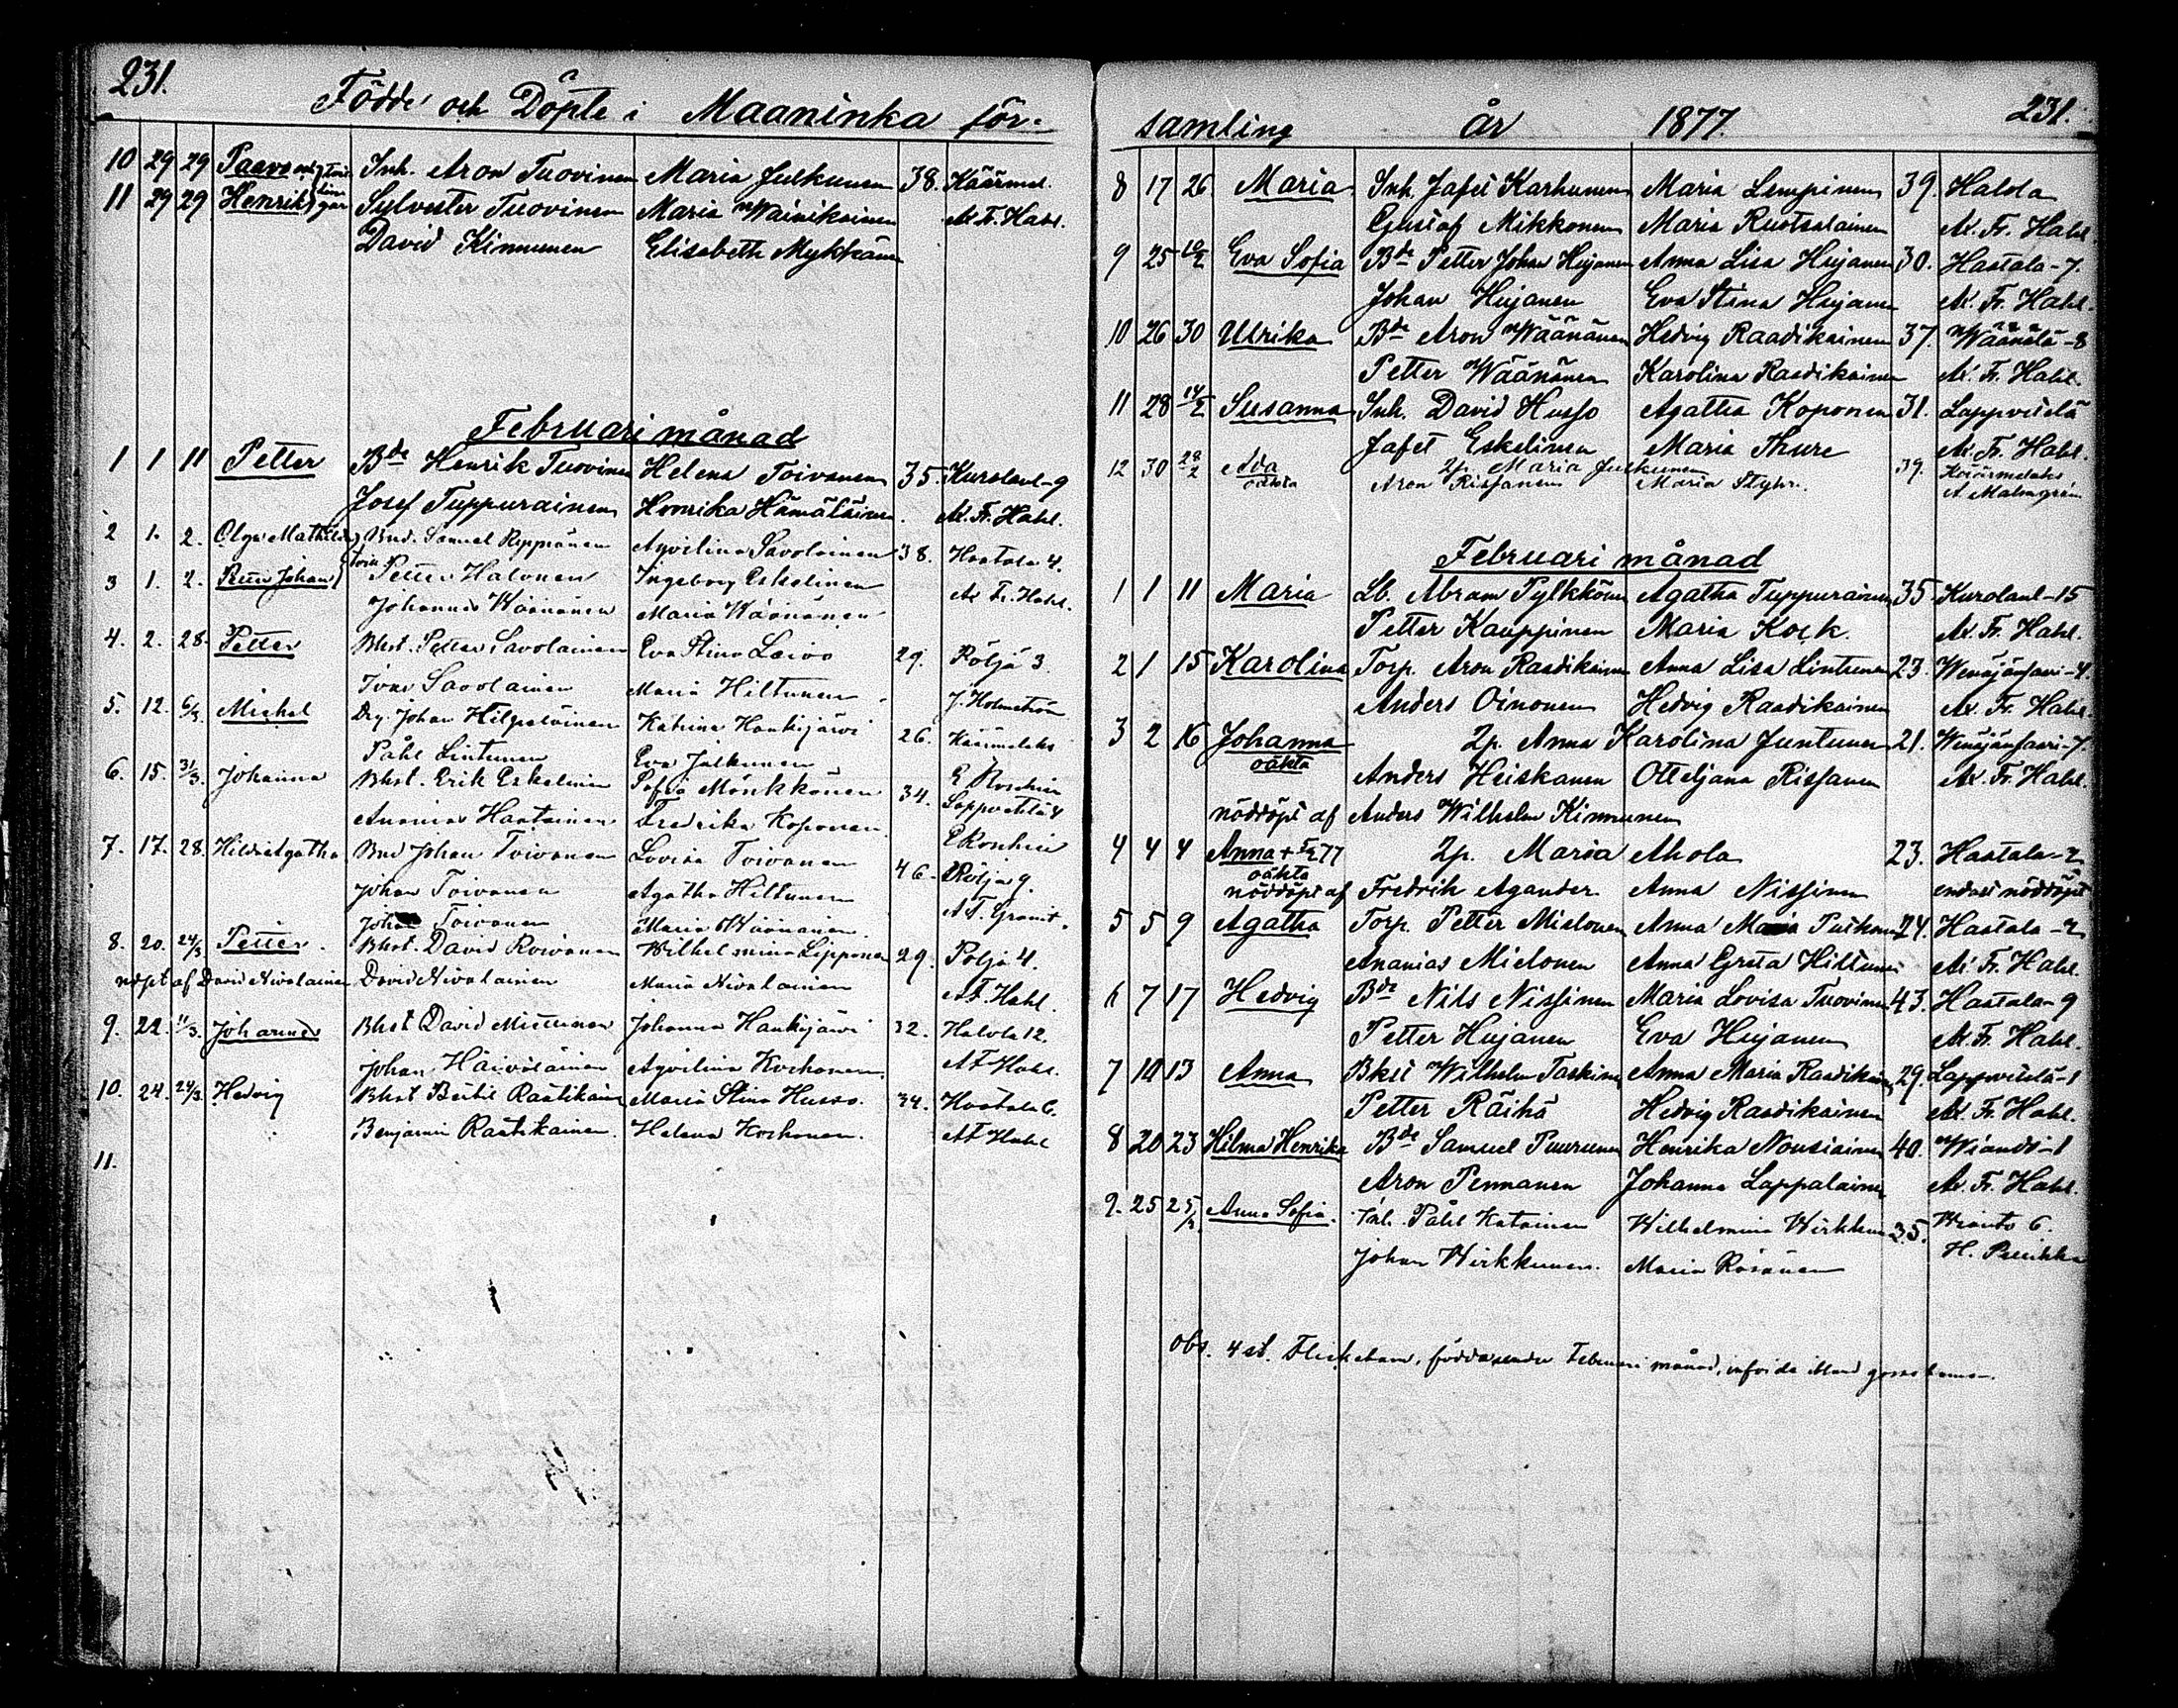 231.
Födde och Döpte i Maaninka för-
10 29 29 Paavo och Inh. Aron Tuovinen Maria Julkunen 38. Käärmel.
11 29 29 Henrik Sylvester Tuovinen Maria Wainikainen Ax. F. Hahl.
David Kinnunen Elisabeth Mykkänen
Februari månad
1 1 11 Petter Bde Henrik Tuovinen Helena Toivanen 35. Kurolanl-9
Josef Tuppurainen Henrika Hämäläinen Ax. Fr. Hahl.
2 1. 2. Olga Mathilda Bnd. Samuel Reppänen Agvilina Savolainen 38. Haatala 4.
3 1. 2. Petter Johan Petter Halonen Ingeborg Eskelinen Ax Fr. Hahl.
Johannes Wäänänen Maria Wäänänen
4. 2. 28. Petter Bhst. Petter Savolainen Eva Stina Laivo 29. Pöljä 3.
Ivar Savolainen Maria Hiltunen J. Holmström
5. 12. 6/3. Michel Drg. Johan Hilpeläinen Katrina Hankijärvi 26. Käärmelaks
Påhl Lintunen Eva Julkunen E Roschier
6. 15. 31/3. Johanna Bhst. Erik Eskelinen Sofia Mönkkönen 34. Lappvetelä 4
Ananias Haatainen Fredrika Koponen E Roschier
7. 17. 28. Hilda Agatha Bnd Johan Toivanen Lovisa Toivanen 46. Pöljä 9.
Johan Toivanen Agatha Hiltunen A F. Granit.
Johan Toivanen Maria Wäänänen.
8. 20. 24/3 Petter. Bhst. David Roivanen Wilhelmina Lipponen 29. Pöljä 4.
nöpt af David Nivalainen David Nivalainen Maria Nivalainen A F Hahl.
9. 22. 11/3. Johannes Bhst David Miettinen Johanna Hankijärvi 32. Halola 12.
Johan Häiväläinen Agvilina Korhonen. A F Hahl.
10. 24. 24/3. Hedvig Bhst Bertil Raatikainen Maria Stina Husso. 34. Haatala 6.
Benjamin Raatikainen. Helena Korhonen. A F Hahl
11.
231.
samling år 1877.
8 17 26 Maria Inh. Jafet Karhunen Maria Lempinen 39. Halola
Gustaf Mikkonen Maria Ruotsalainen Ax. Fr. Hahl.
9 25 10/2 Eva Sofia Bde Petter Johan Hujanen Anna Lisa Hujanen 30. Haatala-7.
Johan Hujanen Eva Stina Hujanen Ax. Fr. Hahl.
10 26 30 Ulrika Bde Aron Wäänänen Hedvig Raadikainen 37. Wäänälä-8
Petter Wäänänen Karolina Raadikainen Ax. Fr. Hahl.
11 28 14/2 Susanna Inh. David Husso Agatha Koponen 31. Lappvetelä
Jafet Eskelinen Maria Thure Ax. Fr. Hahl.
12 30 28/2 Ada 2p. Maria Juskunen 39. Käärmelaks
oäkta Aron Rissanen Maria Styhr. A Malmgrén
Februari månad
1 1 11 Maria Lb. Abram Pylkkönen Agatha Tuppurainen 35 Kurolanl-15
Petter Kauppinen Maria Kock. Ax. Fr. Hahl.
2 1 15 Karolina Torp. Aron Raadikainen Anna Lisa Lintunen 23. Wenäjänsaari-4.
Anders Oinonen Hedvig Raadikainen Ax. Fr. Hahl.
3 2 16 Johanna 2p. Anna Karolina Juntunen 21. Wenäjänsaari-7.
oäkta Anders Heiskanen Otteljana Rissanen Ax. Fr. Hahl.
nöddöpt af Anders Wilhelm Kinnunen
4 4 4 Anna + 5/2 77 2p. Maria Ahola 23. Haatala-2
oäkta
nöddöpt af Fredrik Agander. Anna Nissinen endast nöddöpt
5 5 9 Agatha Torp. Petter Mielonen Anna Maria Putkonen 24. Haatala-2
Ananias Mielonen Anna Greta Hiltunen Ax. Fr. Hahl.
6 7 17 Hedvig Bde Nils Nissinen Maria Lovisa Tuovinen 43. Haatala-9
Petter Hujanen Eva Hujanen Ax. Fr. Hahl.
7 10 13 Anna Bkst Wilhelm Taskinen Anna Maria Raadikainen 29. Lappvetelä-1
Petter Räihä Hedvig Raadikainen Ax. Fr. Hahl.
8 20 23 Hilma Henrika Bde Samuel Puurunen Henrika Nousiainen 40. Wiando-1
Aron Pennanen Johanna Lappalainen Ax. Fr. Hahl.
9. 25 25/3 Anna Sofia. Inh. Påhl Katainen Wilhelmina Wirkkunen 35. Wianto 6.
Johan Wirkkunen. Maria Räsänen H. Pelikka
Obs. 4 st. Flickebarn, födda under Februari månad, införda ibland gossebarnen.